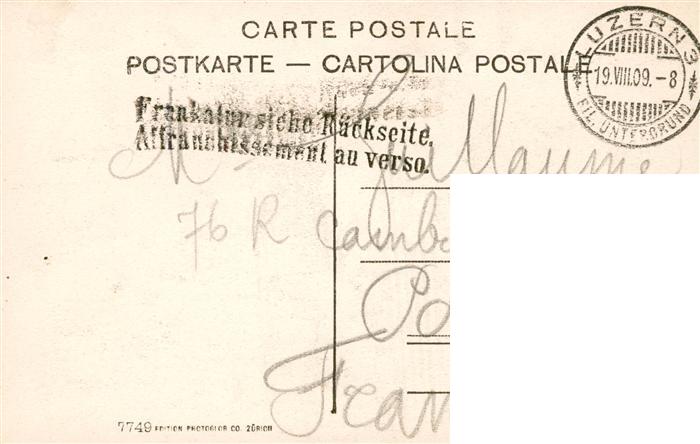 CARTE POSTALE
POSTKARTE — CARTOLINA POSTALE
LUZERN 3
19.VIII.09.-8
FIL. UNTERGRUND
Frankatur siehe Rückseite.
Affranchissement au verso.
Guillaume
76 R
7749 EDITION PHOTOGLOB CO. ZÜRICH